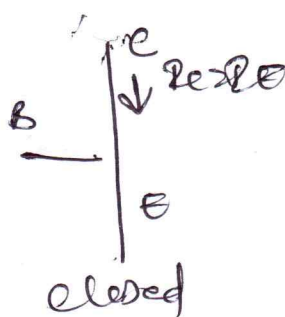 C
B
E
closed